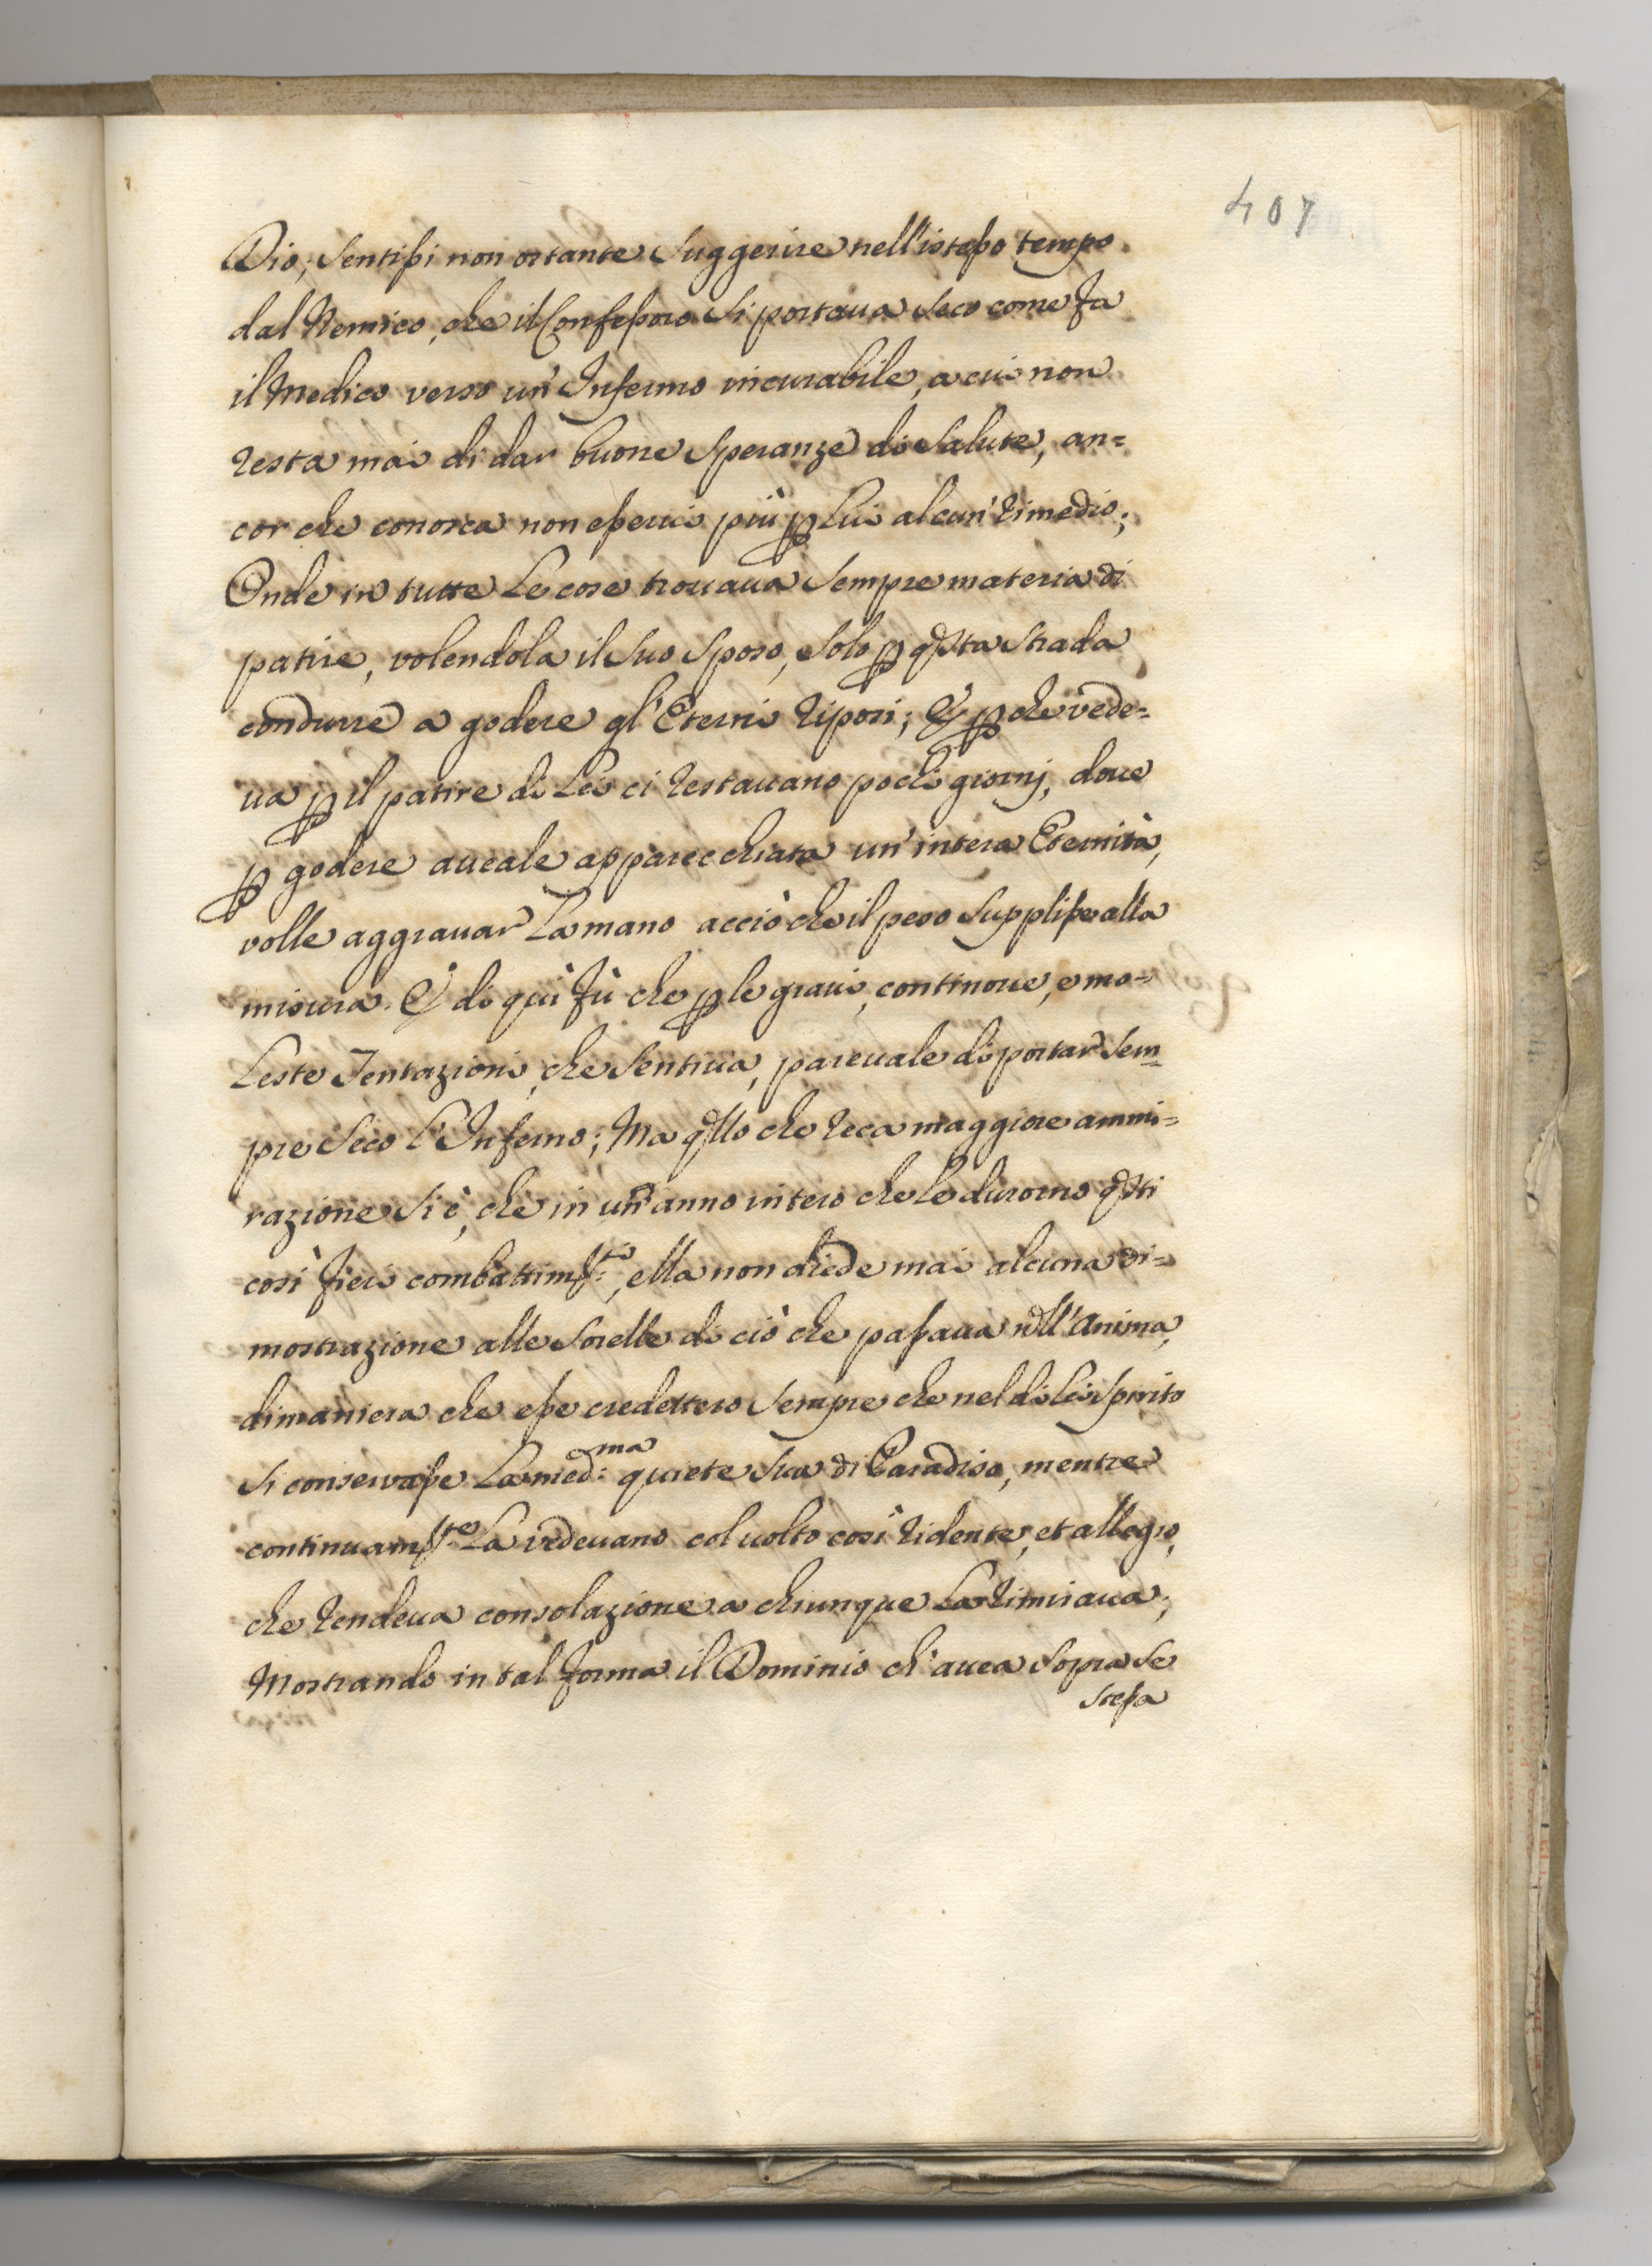 407
Dio; sentissi non ostante suggerire nell'istesso tempo
dal Nemico, che il Confessoro si portaua seco come fa
il Medico verso un' Infermo incurabile, a cui non
resta mai di dar buone speranze di salute, an=
cor che conosca non esserui più p Lui alcun' rimedio;
Onde in tutte Le cose trouaua sempre materia di
patire, volendola il suo Sposo, solo p qsta strada
condurre a godere gl' Eterni riposi; E p che vede=
ua p il patire di Lei ci restauano pochi giornj, doue
p godere aueale apparecchiata un' intera Eternità,
volle aggrauar La mano acciò che il peso supplisse alla
misura. E di quì fù che p le graui, continoue, e mo=
Leste Tentazioni, che sentiua, pareuale di portar sem=
pre seco l' Inferno; Ma qllo che reca maggiore ammi=
razione si è, che in un' anno intero che le durorno qsti
così fieri combattimti:, ella non diede mai alcuna di=
mostrazione alle Sorelle di ciò che passaua nell' Anima,
dimaniera che esse credettero sempre che nel di Lei Spirito
si conseruasse La med:ma quiete sua di Paradiso, mentre
continuamte La vedeuano col uolto così ridente, et allegro,
che rendeua consolazione a chiunque La rimiraua;
Mostrando in tal forma il Dominio ch' auea sopra se
stessa